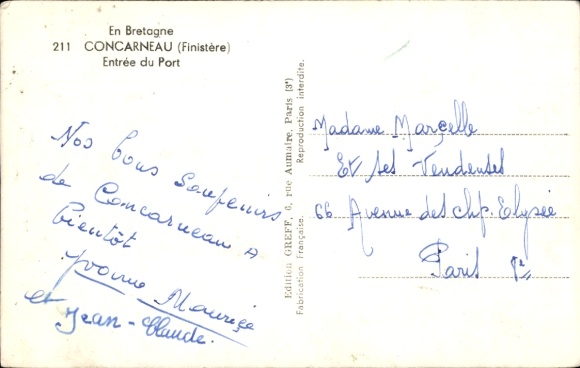 En Bretagne
211 CONCARNEAU (Finistère)
Entrée du Port
Nos bons Souvenirs
de Concarneau A
bientôt
Yvonne Maurice
et Jean-Claude.
Edition GREFF, 6, rue Aumaire, Paris (3e)
Fabrication Française. Reproduction interdite.
Madame Marcelle
Et ses Vendeuses
66 Avenue des chp. Elysée
Paris